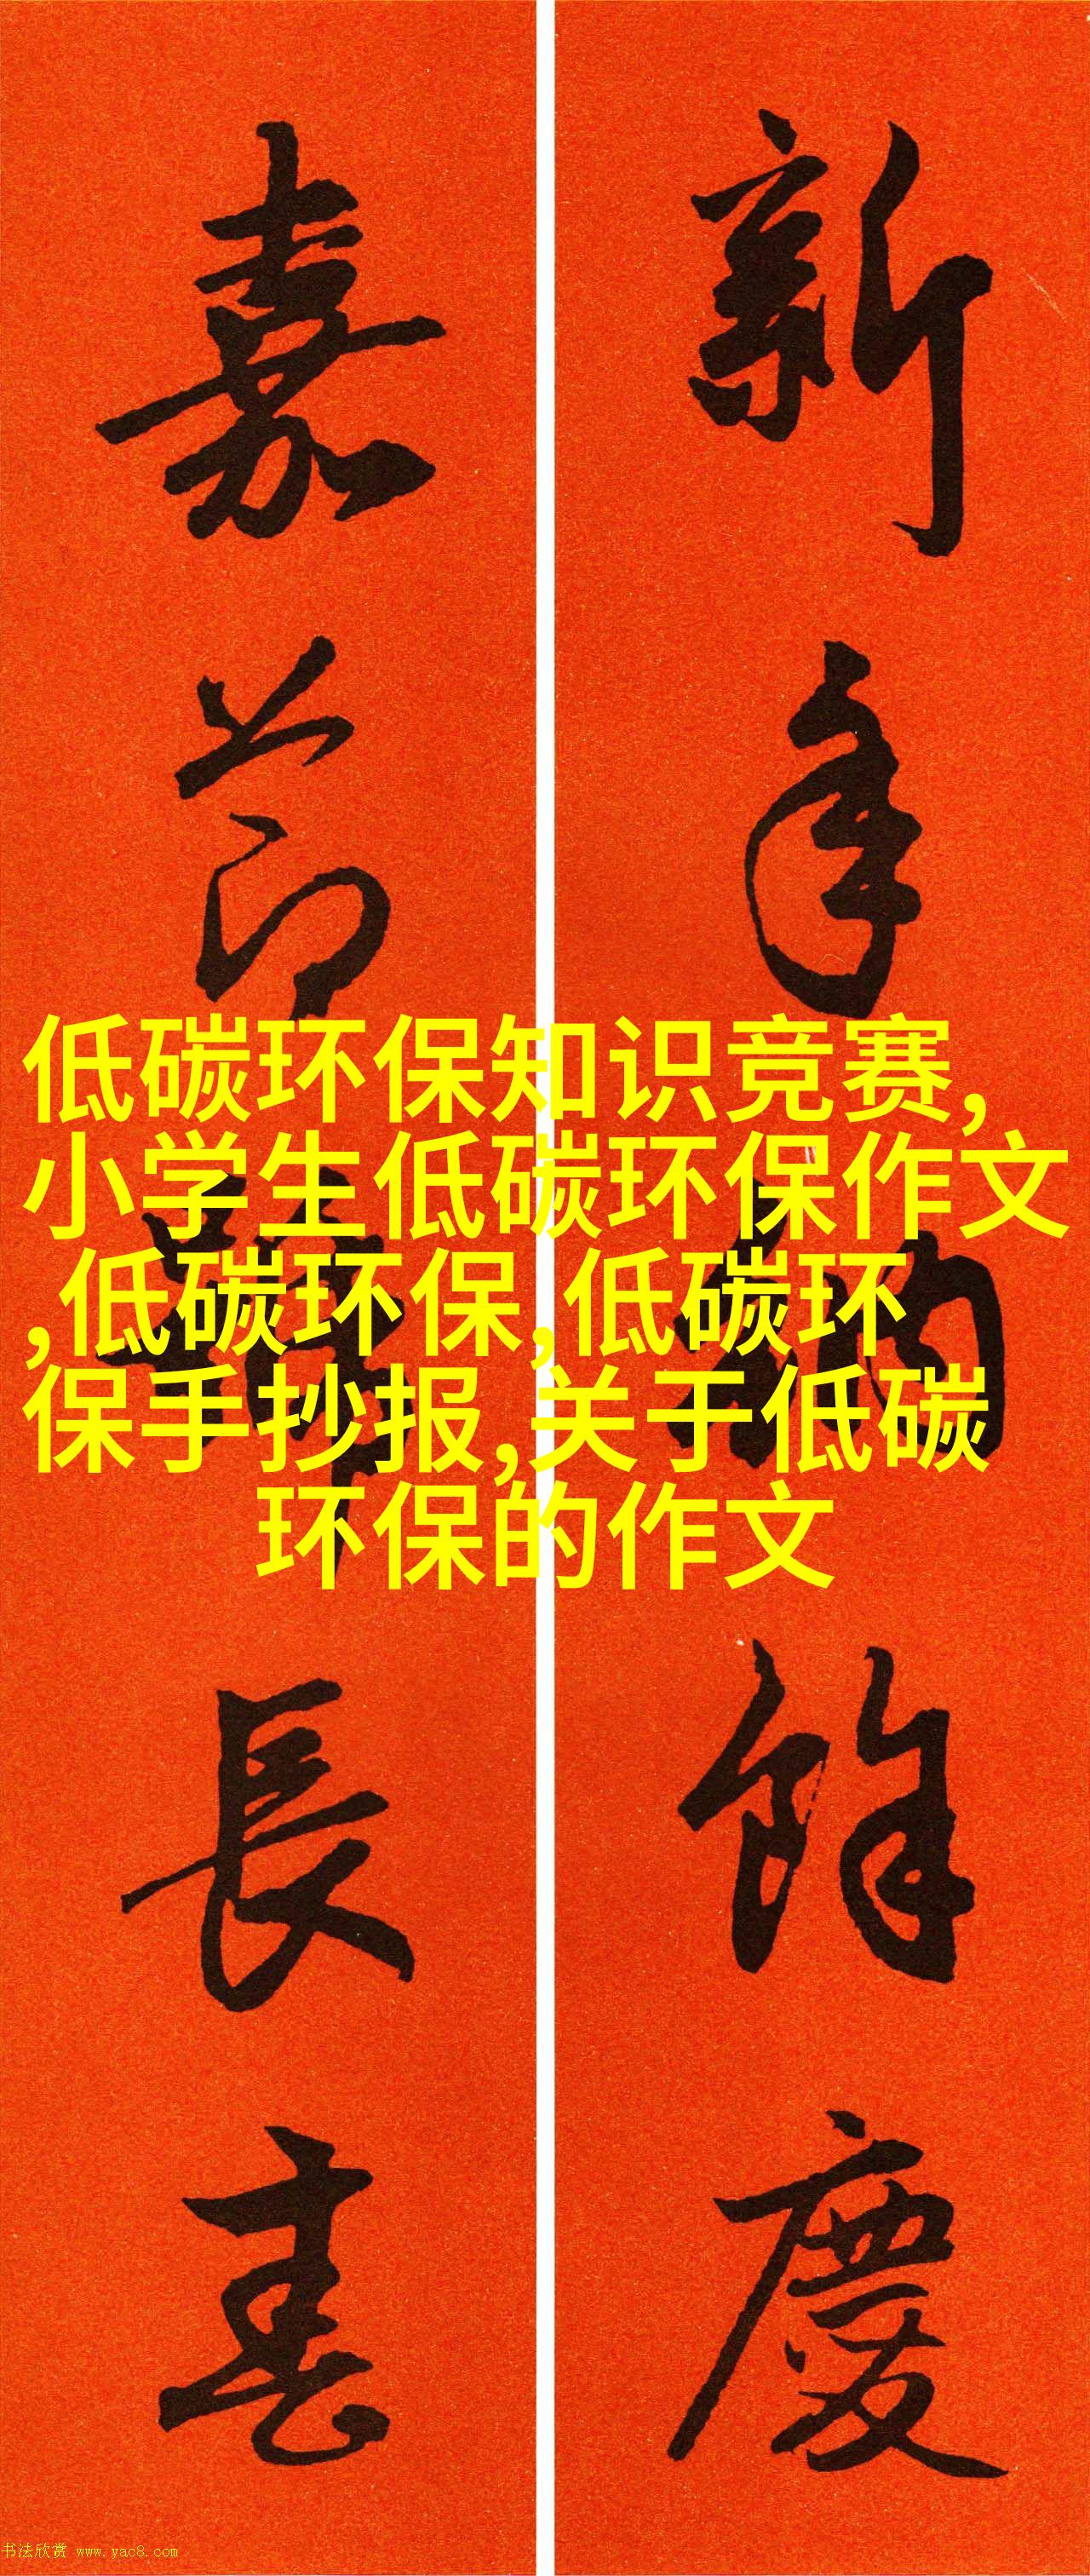 新年納餘慶
嘉節號長春
低碳环保知识竞赛,
小学生低碳环保作文
,低碳环保,低碳环
保手抄报,关于低碳
环保的作文
书法欣赏 www.yac8.com